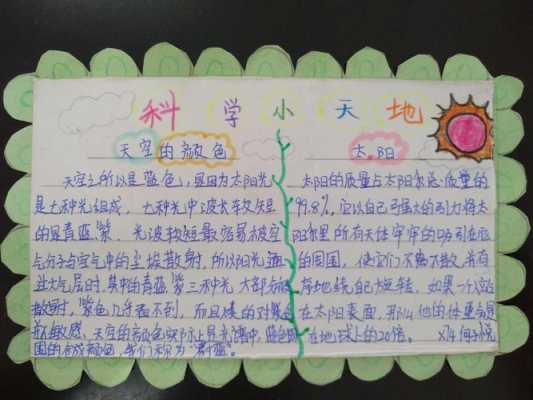 科学小天地
天空的颜色
天空之所以是蓝色,是因为太阳光
是七种光组成,七种光中波长较短
的是青蓝紫,光波较短最容易被空
气分子与空气中的尘埃散射,所以阳光通
过大气层时,其中的青蓝紫三种光大部分被
散射,紫色几乎看不到,而且
敏感,天空的颜色实际上是光谱中蓝色
的合成颜色,我们称为"蔚蓝"。
太阳
太阳的质量占太阳系总质量的
99.8%,它以自己强大的引力将太
阳系里所有天体牢牢的吸引在
的周围,使它们不离不散,井有
地绕自己旋转,如果一个人站
在太阳表面,那么他的体重会是
在地球上的20倍。